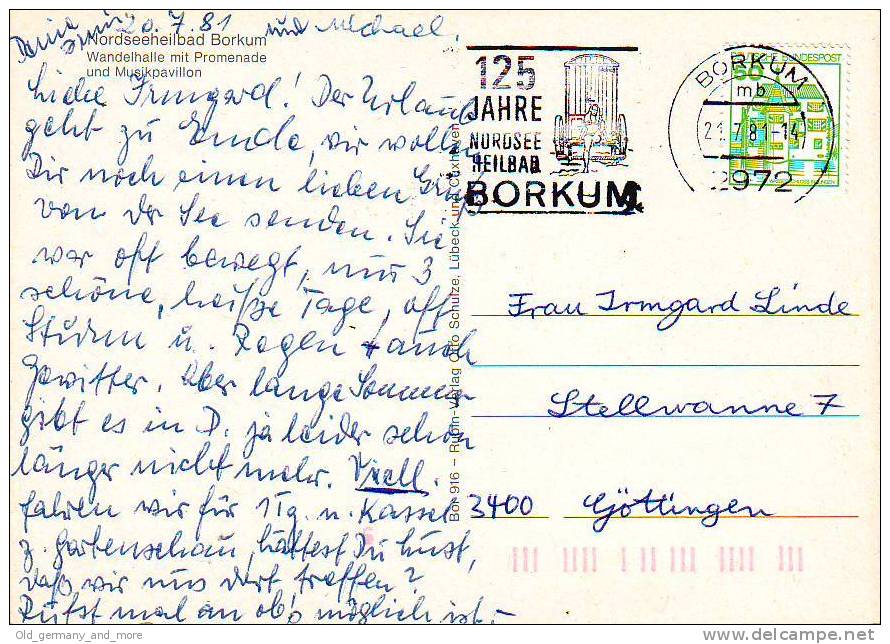 20.7.81
und Michael.
Nordseeheilbad Borkum
Wandelhalle mit Promenade
und Musikpavillon
Liebe Irmgard! Der Urlaub
geht zu Ende, wir wollen
Dir noch einen lieben Gruß
von der See senden. Sie
war oft bewegt, nur 3
schöne, heiße Tage, oft
Sturm u. Regen + auch
Gewitter. Aber lange Sommer
gibt es in D. ja leider schon
länger nicht mehr. Viell.
fahren wir für 1 Tg. n. Kassel
z. Gartenschau, hättest Du Lust,
daß wir uns dort treffen?
Rufst mal an ob's möglich ist.-
Bor 916 – Rubin-Verlag Otto Schulze, Lübeck und Cuxhaven
125
JAHRE
NORDSEE
HEILBAD
BORKUM
BORKUM
mb
21.7.81-14
2972
60
DEUTSCHE BUNDESPOST
Frau Irmgard Linde
Stellwanne 7
3400 Göttingen
Old_germany_and_more
delcampe.net